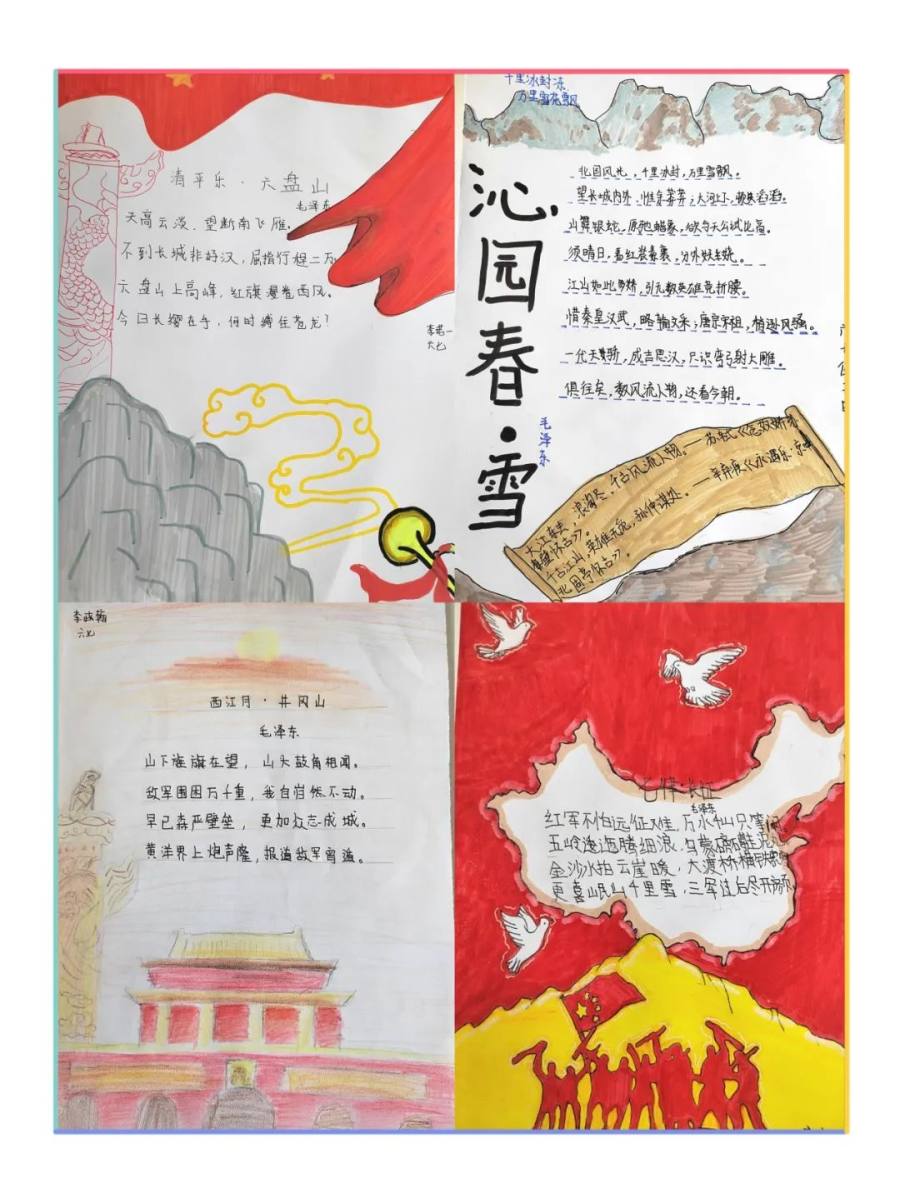 清平乐·六盘山
毛泽东
天高云淡、望断南飞雁。
不到长城非好汉,屈指行程二万
六盘山上高峰,红旗漫卷西风。
今日长缨在手,何时缚住苍龙?
李君一
六七
千里冰封冻
万里雪花飘
沁园春·雪
毛泽东
北国风光,千里冰封,万里雪飘。
望长城内外,惟余莽莽;大河上下,顿失滔滔。
山舞银蛇,原驰蜡象,欲与天公试比高。
须晴日,看红装素裹,分外妖娆。
江山如此多娇,引无数英雄竞折腰。
惜秦皇汉武,略输文采;唐宗宋祖,稍逊风骚。
一代天骄,成吉思汗,只识弯弓射大雕。
俱往矣,数风流人物,还看今朝。
大江东去,浪淘尽,千古风流人物。——苏轼《念奴娇·赤
壁怀古》。
千古江山,英雄无觅,孙仲谋处。——辛弃疾《永遇乐·京口
北固亭怀古》。
李政翰
六七
西江月·井冈山
毛泽东
山下旌旗在望,山头鼓角相闻。
敌军围困万千重,我自岿然不动。
早已森严壁垒,更加众志成城。
黄洋界上炮声隆,报道敌军宵遁。
七律·长征
毛泽东
红军不怕远征难,万水千山只等闲
五岭逶迤腾细浪,乌蒙磅礴走泥
金沙水拍云崖暖,大渡桥横铁索
更喜岷山千里雪,三军过后尽开颜